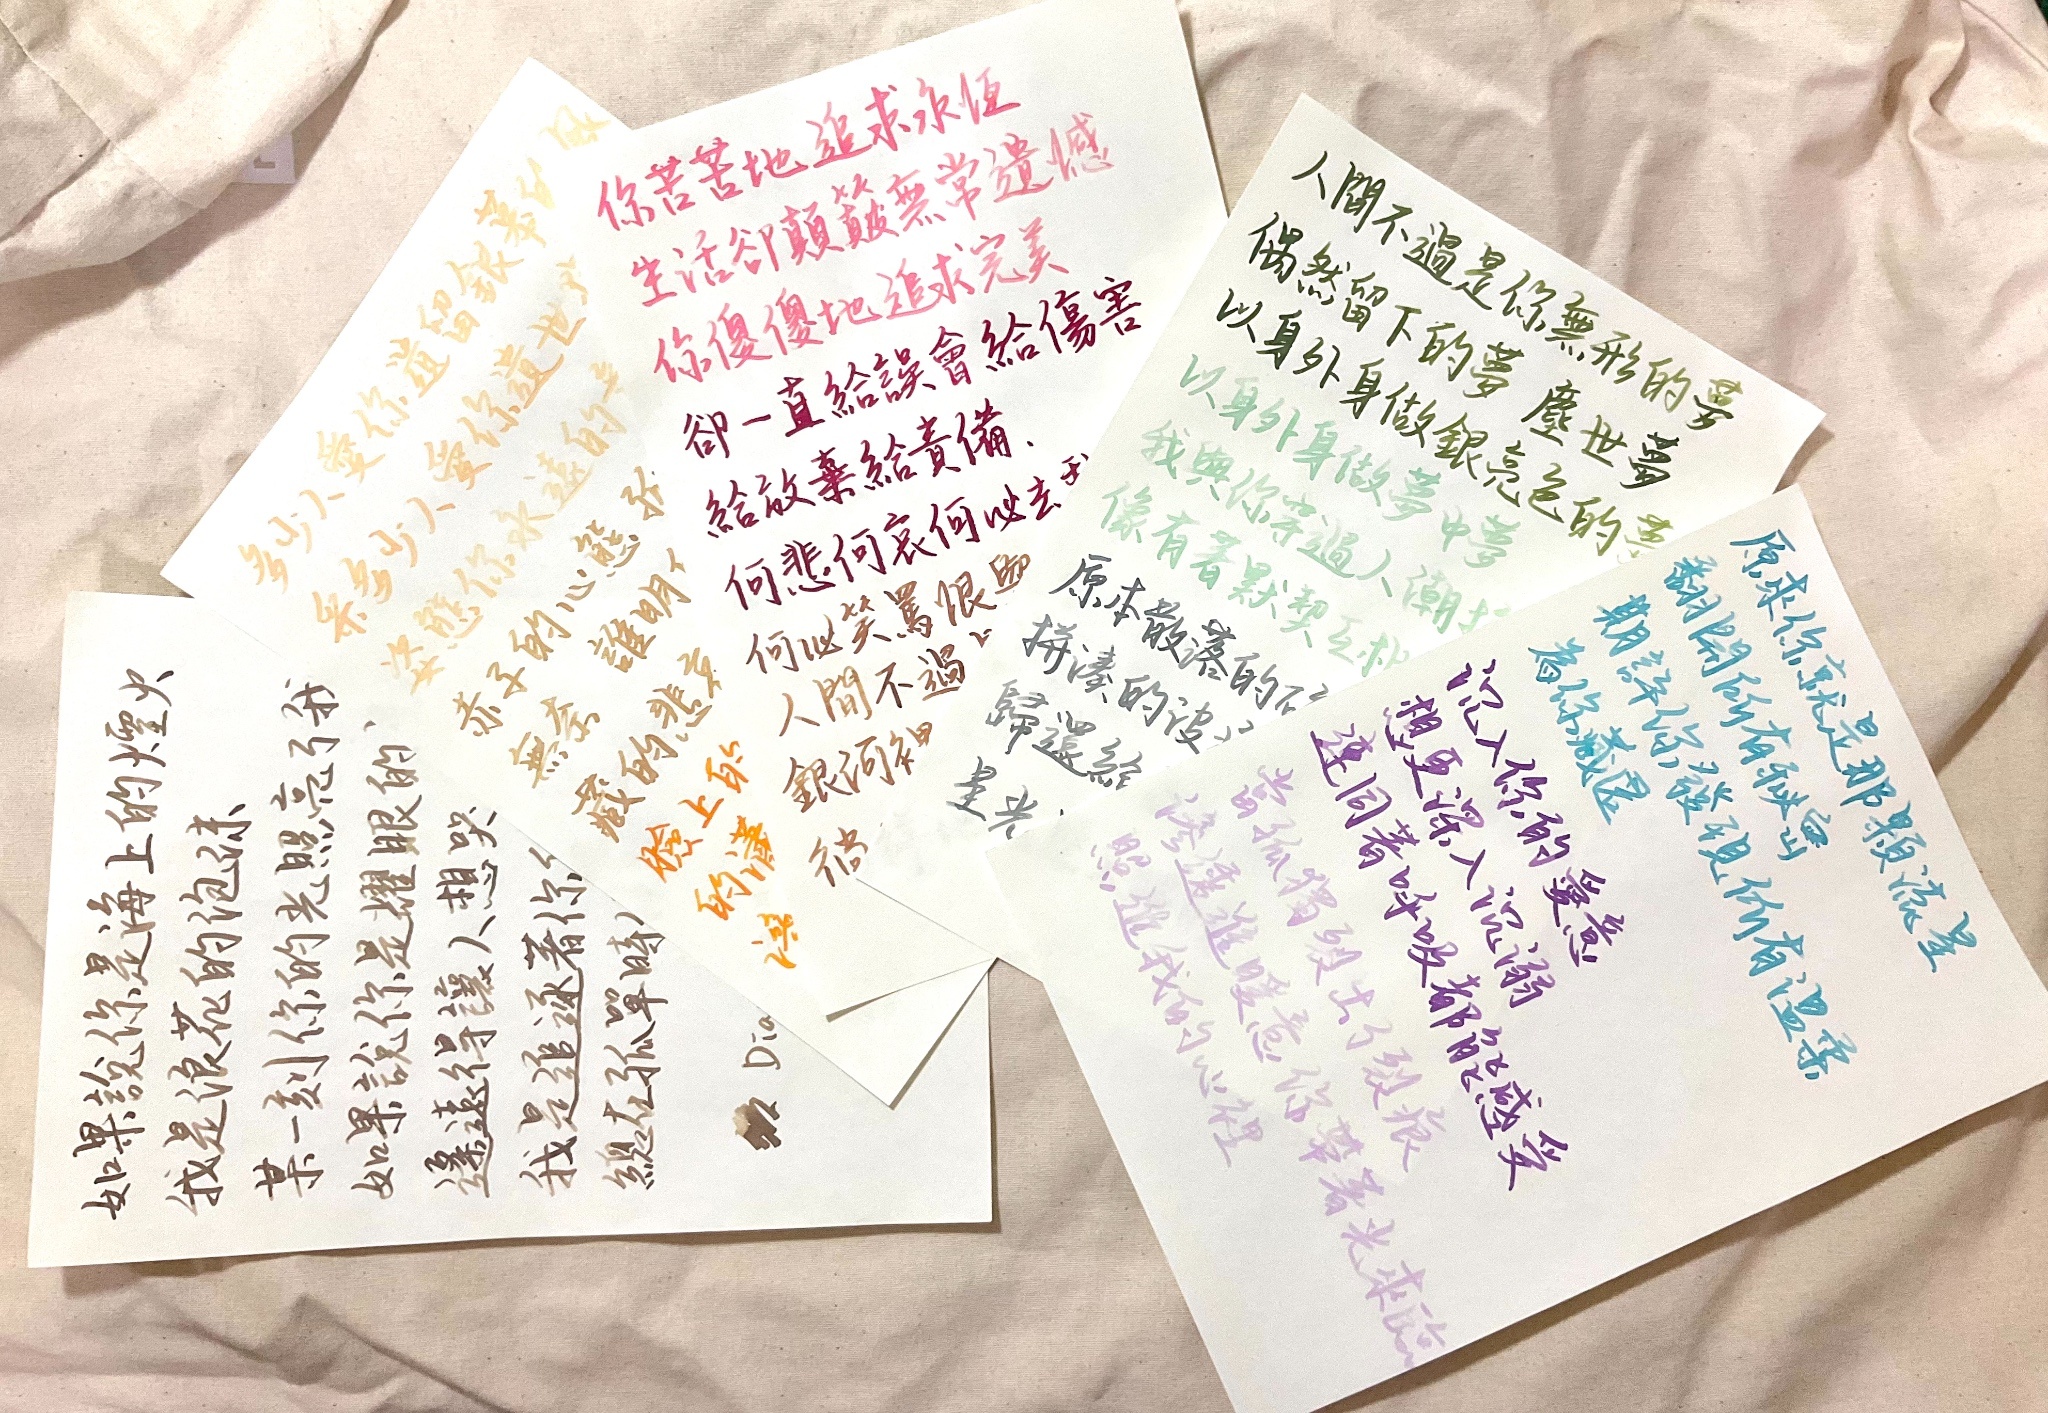 如果說你是海上的煙火
我是浪花的泡沫
某一刻你的光照亮了我
如果說你是耀眼的
遙遠得讓人想哭
我是追逐著你
總在孤單時
Dia
多少人愛你遺留銀幕的風
未多少人愛你遺世
姿態你永遠的
恭子的心態
無奈 誰明
藏的悲哀
臉上的
的淒
涼
你苦苦地追求永恆
生活卻顛簸無常遺憾
你傻傻地追求完美
卻一直給誤會給傷害
給放棄給責備.
何悲何哀何必去我
何必笑罵恨與
人間不過
銀河裡
被
人間不過是你無形的夢
偶然留下的夢 塵世夢
以身外身做銀亮色的夢
以身外身做夢中夢
我與你穿過人潮
像有著默契互相
原本散落的
拼湊的波
歸還給
星光
原來你就是那顆流星
翻開所有秘密
期許你發現所有溫柔
為你減速
沉入你的愛意
想更深入沉溺
連同著呼吸都能感受
當孤獨裂出了裂痕
滲透進暖意你帶著光來臨
照進我的心裡